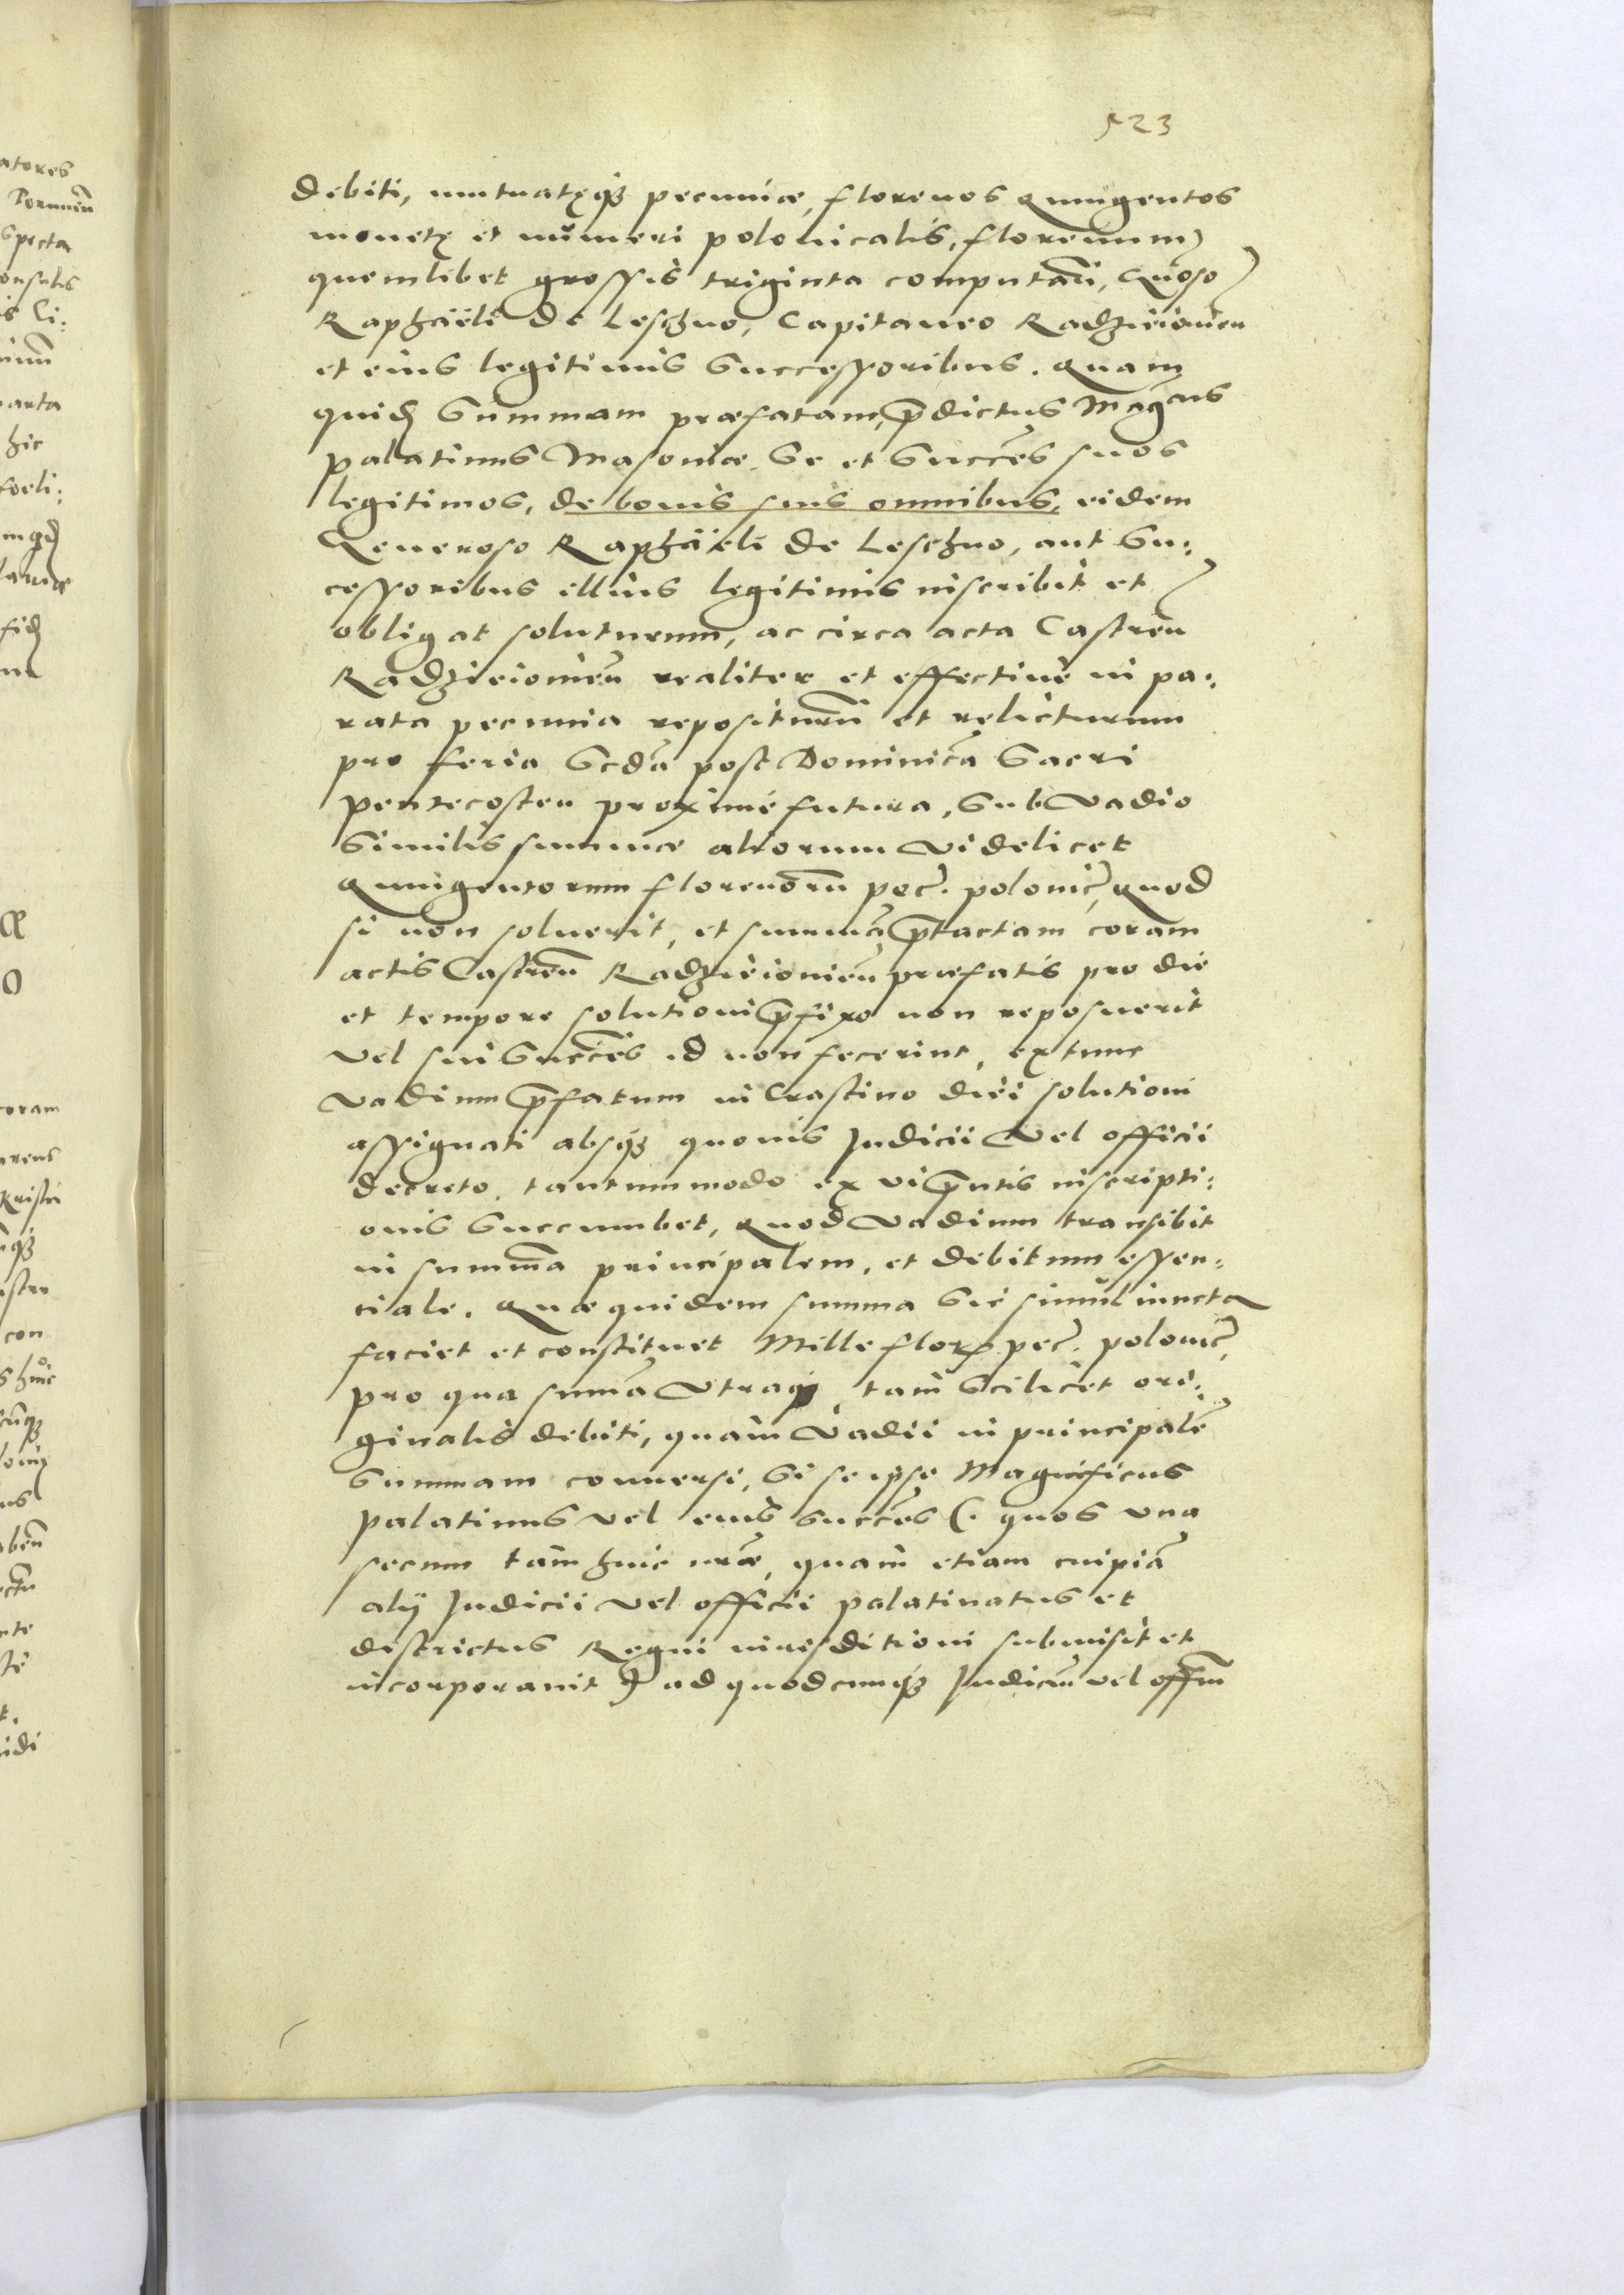 523
debiti, mutuatęq₃ pecuniæ, florenos Quingentos
monetę et numeri polonicalis, florenum
quemlibet grossis triginta computañ, Gnoso
Raphaëli de Leschno, Capitaneo Radzieiouien
et eius legitimis Successoribus. Quam
quid Summam præfatam, p̄dictus Mag̃cus
palatinus Masouiæ, Se et Succẽs suos
legitimos, de bonis suis omnibus, eidem
Generoso Raphaëli de Leschno, aut Su:
cessoribus illius legitimis inscribit et
obligat soluturum, ac circa acta Castren̄
Radzieiouien̄ realiter et effectiuè in pa:
rata pecunia repositurū et relicturum
pro feria Scdā post Dominicā Sacri
Pentecosten proximè futura, Sub Vadio
Similis summæ aliorum Videlicet
Quingentorum florenorū pec̃. polonic̃, Quod
si non soluerit, et summā p̄tactam coram
actis Castren̄ Radzieiouien̄ præfatis pro die
et tempore solutioni p̄fixo non reposuerit
Vel sui Succẽs id non fecerint, extunc
Vadium p̄fatum in Crastino diei solutioni
assignati absq₃ quouis Judicii Vel officii
decreto, tantummodo ex vi p̄ntis inscripti:
onis Succumbet, Quod Vadium transibit
in summā principalem, et debitum essen:
tiale. Quæ quidem summa Sic simul iuncta
faciet et constituet Mille flor pec̃. polonic̃,
pro qua sumā Vtraq₃, tam Scilicet ori:
ginalis debiti, quàm Vadii in principalē
Summam conuersi, Si se ipse Magnificus
palatinus Vel eius Succẽs (: quos Vna
secum tam huic nr̄æ, quàm etiam cuipiā
alij Judicii Vel officii palatinatus et
districtus Regni iurisditioni submisit et
incorporauit :) ad quodcunq₃ Judiciū vel offm̄